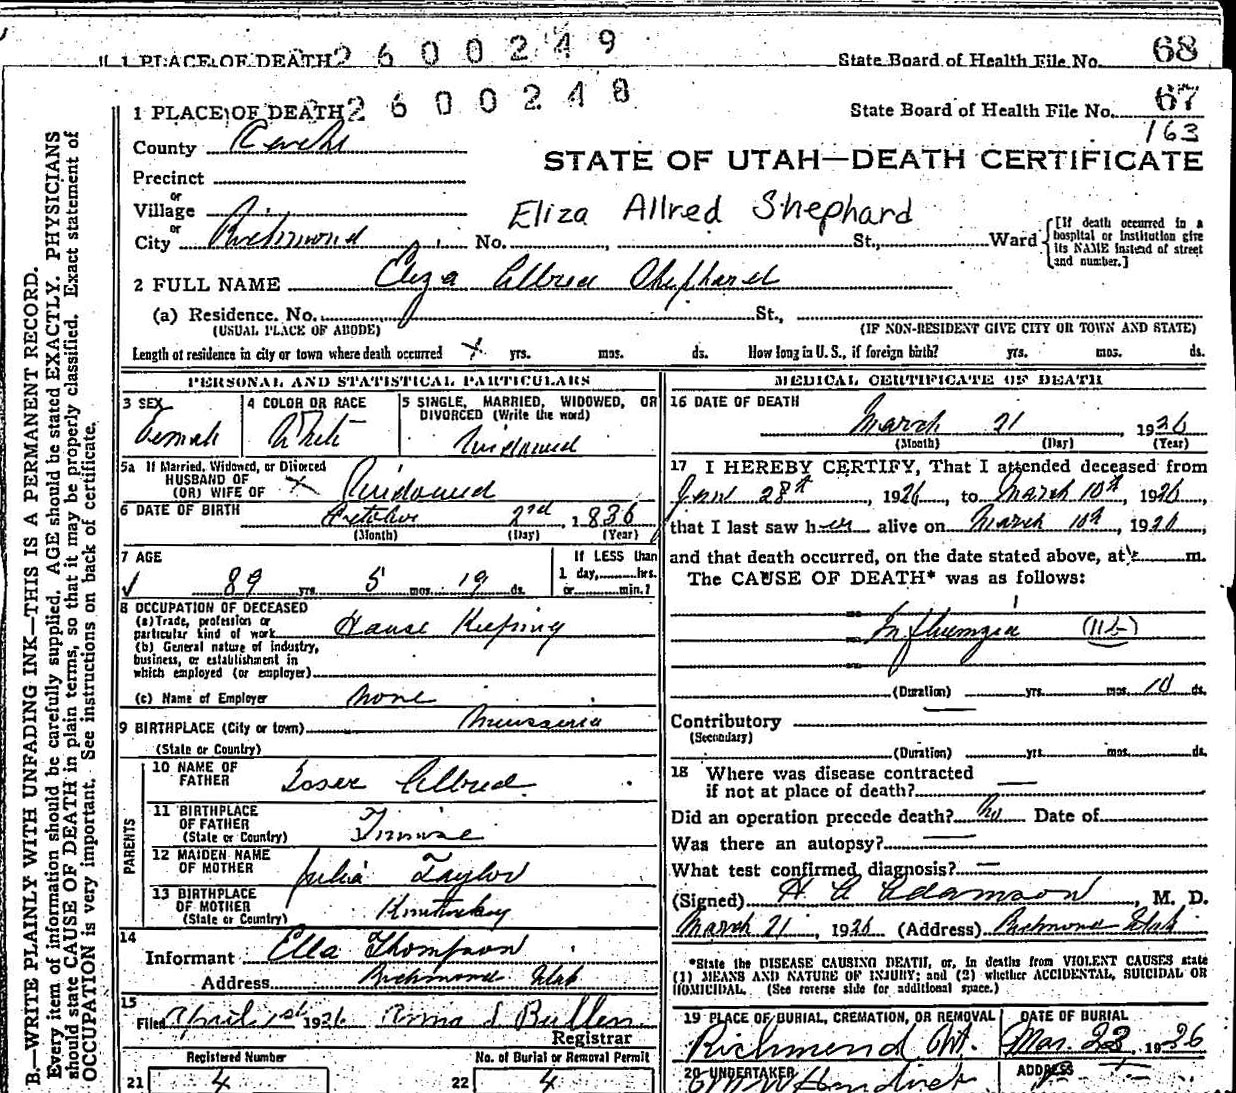 1 PLACE OF DEATH 2600249 State Board of Health File No. 68
1 PLACE OF DEATH 2600248 State Board of Health File No. 67
163
County Cache
STATE OF UTAH—DEATH CERTIFICATE
Precinct
or
Village
Eliza Allred Shephard
or
City Richmond No. , St., Ward
[If death occurred in a hospital or institution give its NAME instead of street and number.]
2 FULL NAME Eliza Allred Shephard
(a) Residence. No. St.,
(USUAL PLACE OF ABODE) (IF NON-RESIDENT GIVE CITY OR TOWN AND STATE)
Length of residence in city or town where death occurred yrs. mos. ds. How long in U. S., if foreign birth? yrs. mos. ds.
PERSONAL AND STATISTICAL PARTICULARS
3 SEX 4 COLOR OR RACE 5 SINGLE, MARRIED, WIDOWED, OR
DIVORCED (Write the word)
Female White Widowed
5a If Married, Widowed, or Divorced
HUSBAND OF
(OR) WIFE OF Widowed
6 DATE OF BIRTH October 2nd, 1836
(Month) (Day) (Year)
7 AGE If LESS than
1 day, hrs.
89 yrs. 5 mos. 19 ds. or min.?
8 OCCUPATION OF DECEASED
(a) Trade, profession or
particular kind of work House Keeping
(b) General nature of industry,
business, or establishment in
which employed (or employer)
(c) Name of Employer none
9 BIRTHPLACE (City or town)
(State or Country)
PARENTS
10 NAME OF
FATHER Allred
11 BIRTHPLACE
OF FATHER
(State or Country)
12 MAIDEN NAME
OF MOTHER Julia Taylor
13 BIRTHPLACE
OF MOTHER
(State or Country) Kentucky
14
Informant Ella Thompson
Address Richmond Utah
15
Filed April 1st 1926 Bullen
Registrar
Registered Number No. of Burial or Removal Permit
21 4 22 4
MEDICAL CERTIFICATE OF DEATH
16 DATE OF DEATH
March 21 1926
(Month) (Day) (Year)
17 I HEREBY CERTIFY, That I attended deceased from
28th, 1926, to March 10th, 1926,
that I last saw her alive on March 10th, 1926,
and that death occurred, on the date stated above, at m.
The CAUSE OF DEATH* was as follows:
Influenzia (11b)
(Duration) yrs. mos. 10 ds.
Contributory
(Secondary)
(Duration) yrs. mos. ds.
18 Where was disease contracted
if not at place of death?
Did an operation precede death? No Date of
Was there an autopsy?
What test confirmed diagnosis?
(Signed) Adamson, M. D.
March 21, 1926 (Address) Richmond Utah
*State the DISEASE CAUSING DEATH, or, in deaths from VIOLENT CAUSES state
(1) MEANS AND NATURE OF INJURY; and (2) whether ACCIDENTAL, SUICIDAL OR
HOMICIDAL. (See reverse side for additional space.)
19 PLACE OF BURIAL, CREMATION, OR REMOVAL DATE OF BURIAL
Richmond Mar. 23, 1926
20 UNDERTAKER ADDRESS
B.—WRITE PLAINLY WITH UNFADING INK—THIS IS A PERMANENT RECORD.
Every item of information should be carefully supplied. AGE should be stated EXACTLY. PHYSICIANS
should state CAUSE OF DEATH in plain terms, so that it may be properly classified. Exact statement of
OCCUPATION is very important. See instructions on back of certificate.